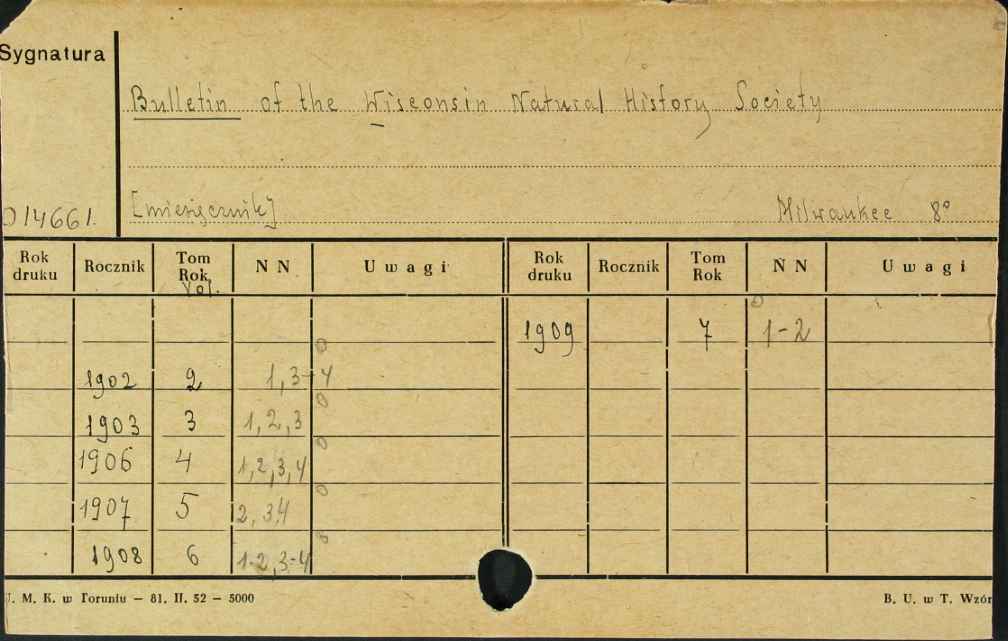 Sygnatura
Bulletin of the Wisconsin Natural History Society
014661. [miesięcznik] Milwaukee 8°
Rok druku Rocznik Tom Rok Vol. N N Uwagi Rok druku Rocznik Tom Rok N N Uwagi
1909 7 1-2
1902 2 1,3-4
1903 3 1,2,3
1906 4 1,2,3,4
1907 5 2,3,4
1908 6 1-2,3-4
U. M. K. w Toruniu — 81. II. 52 — 5000 B. U. w T. Wzór